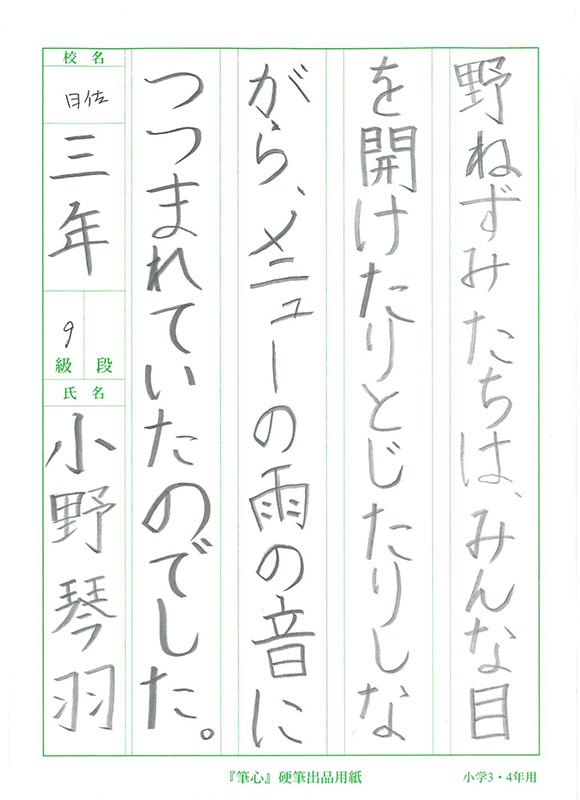 野ねずみたちは、みんな目
を開けたりとじたりしな
がら、メニューの雨の音に
つつまれていたのでした。
校名
日佐
三年
9
級 段
氏名
小野琴羽
『筆心』硬筆出品用紙
小学3・4年用